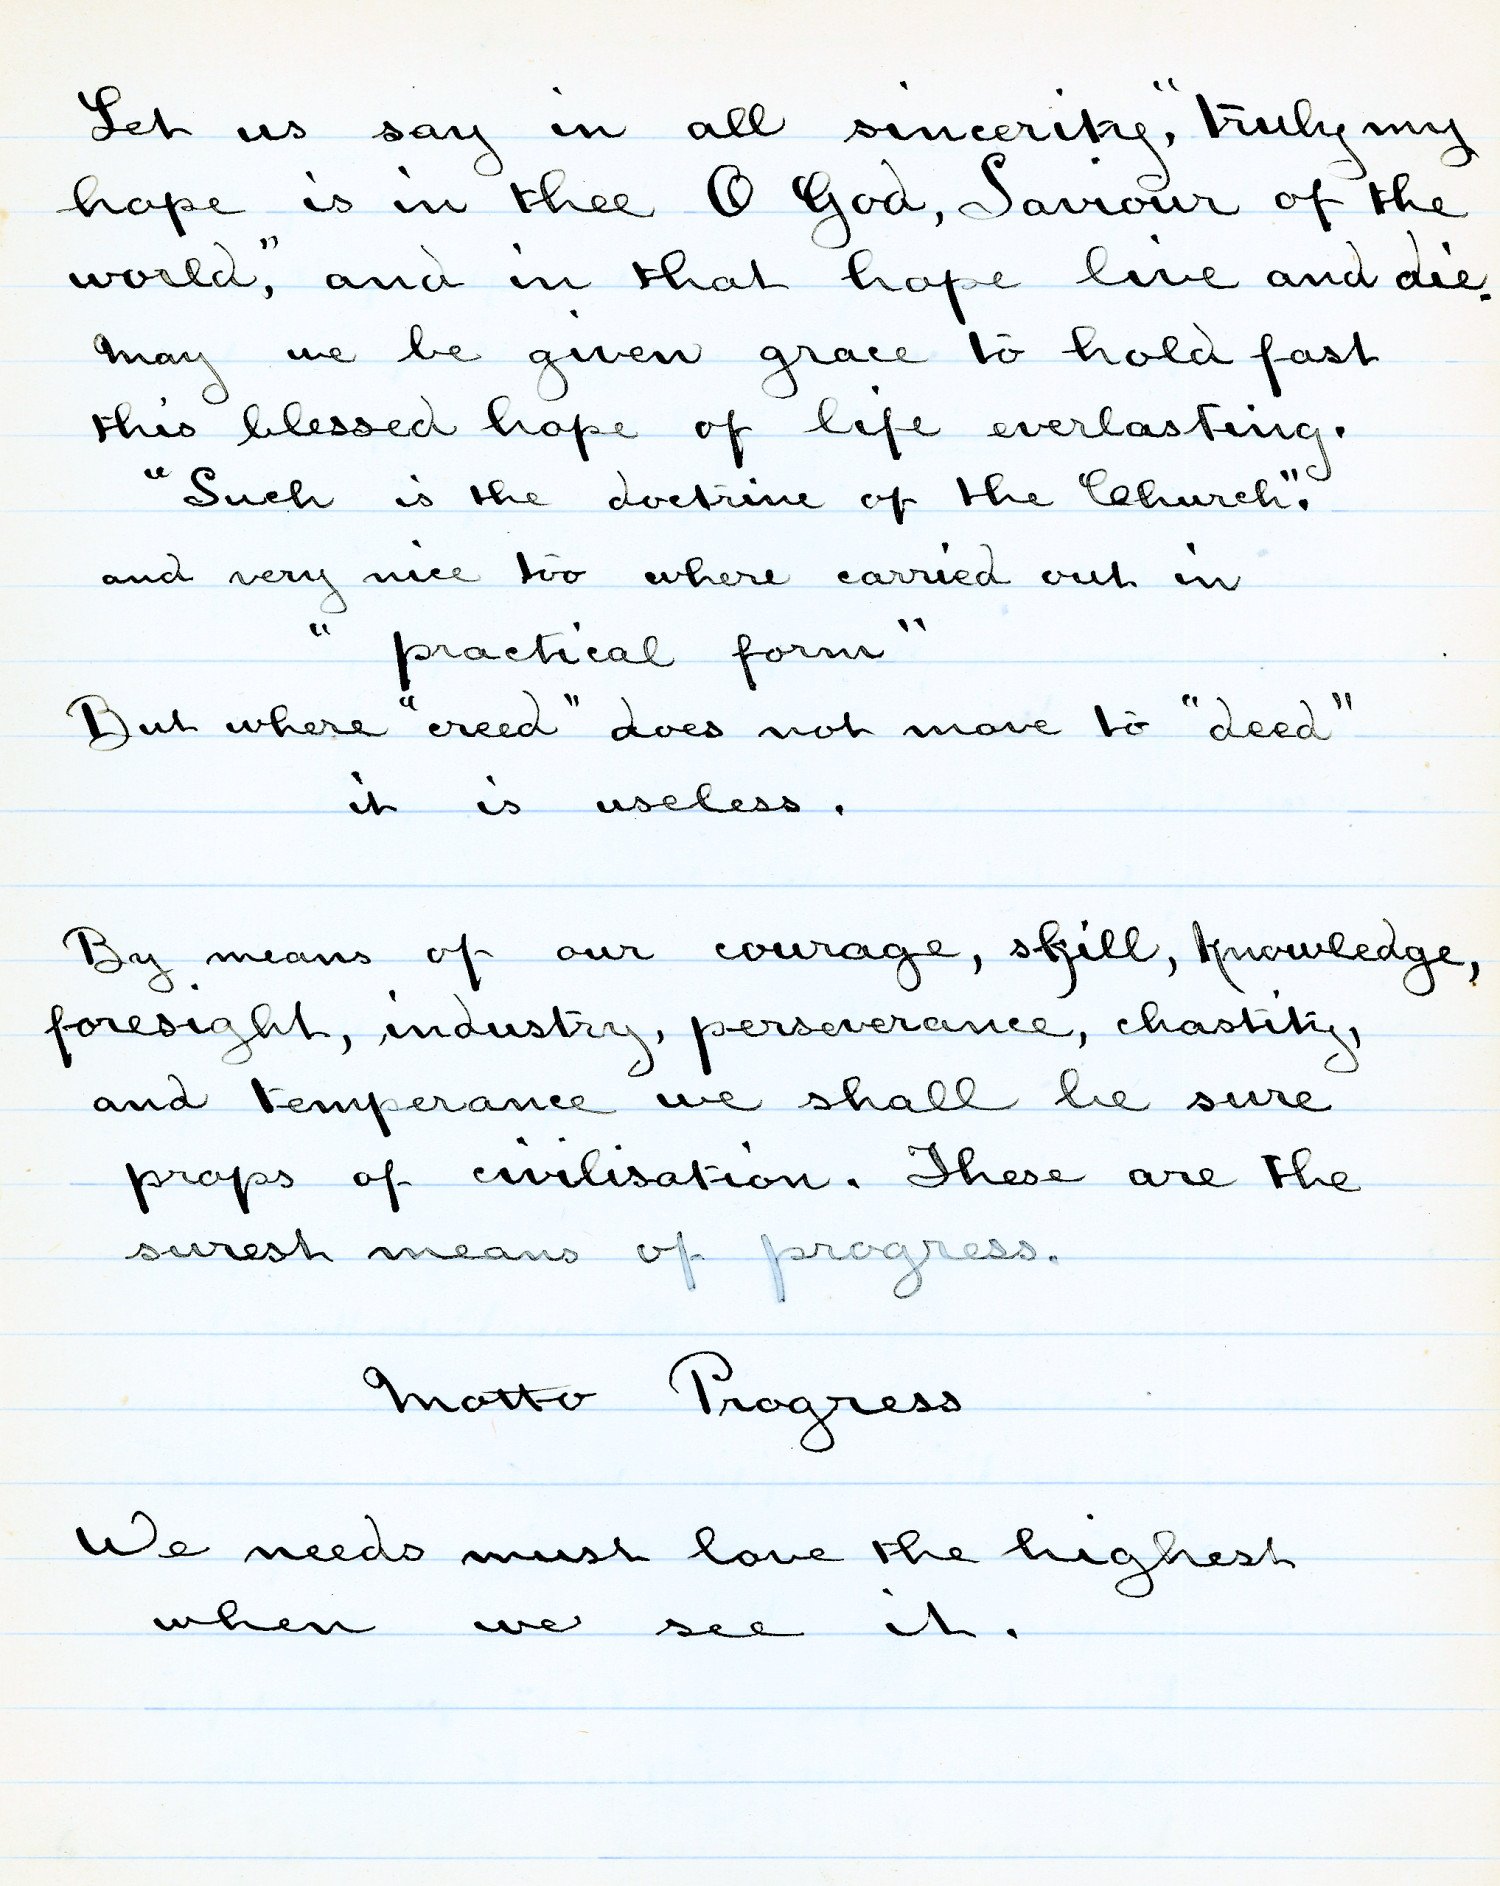 Let us say in all sincerity, "truly my
hope is in thee O God, Saviour of the
world", and in that hope live and die.
May we be given grace to hold fast
this blessed hope of life everlasting.
"Such is the doctrine of the Church".
and very nice too where carried out in
" practical form "
But where "creed" does not move to "deed"
it is useless.
By means of our courage, skill, knowledge,
foresight, industry, perseverance, chastity,
and temperance we shall be sure
props of civilisation. These are the
surest means of progress.
Motto Progress
We needs must love the highest
when we see it.